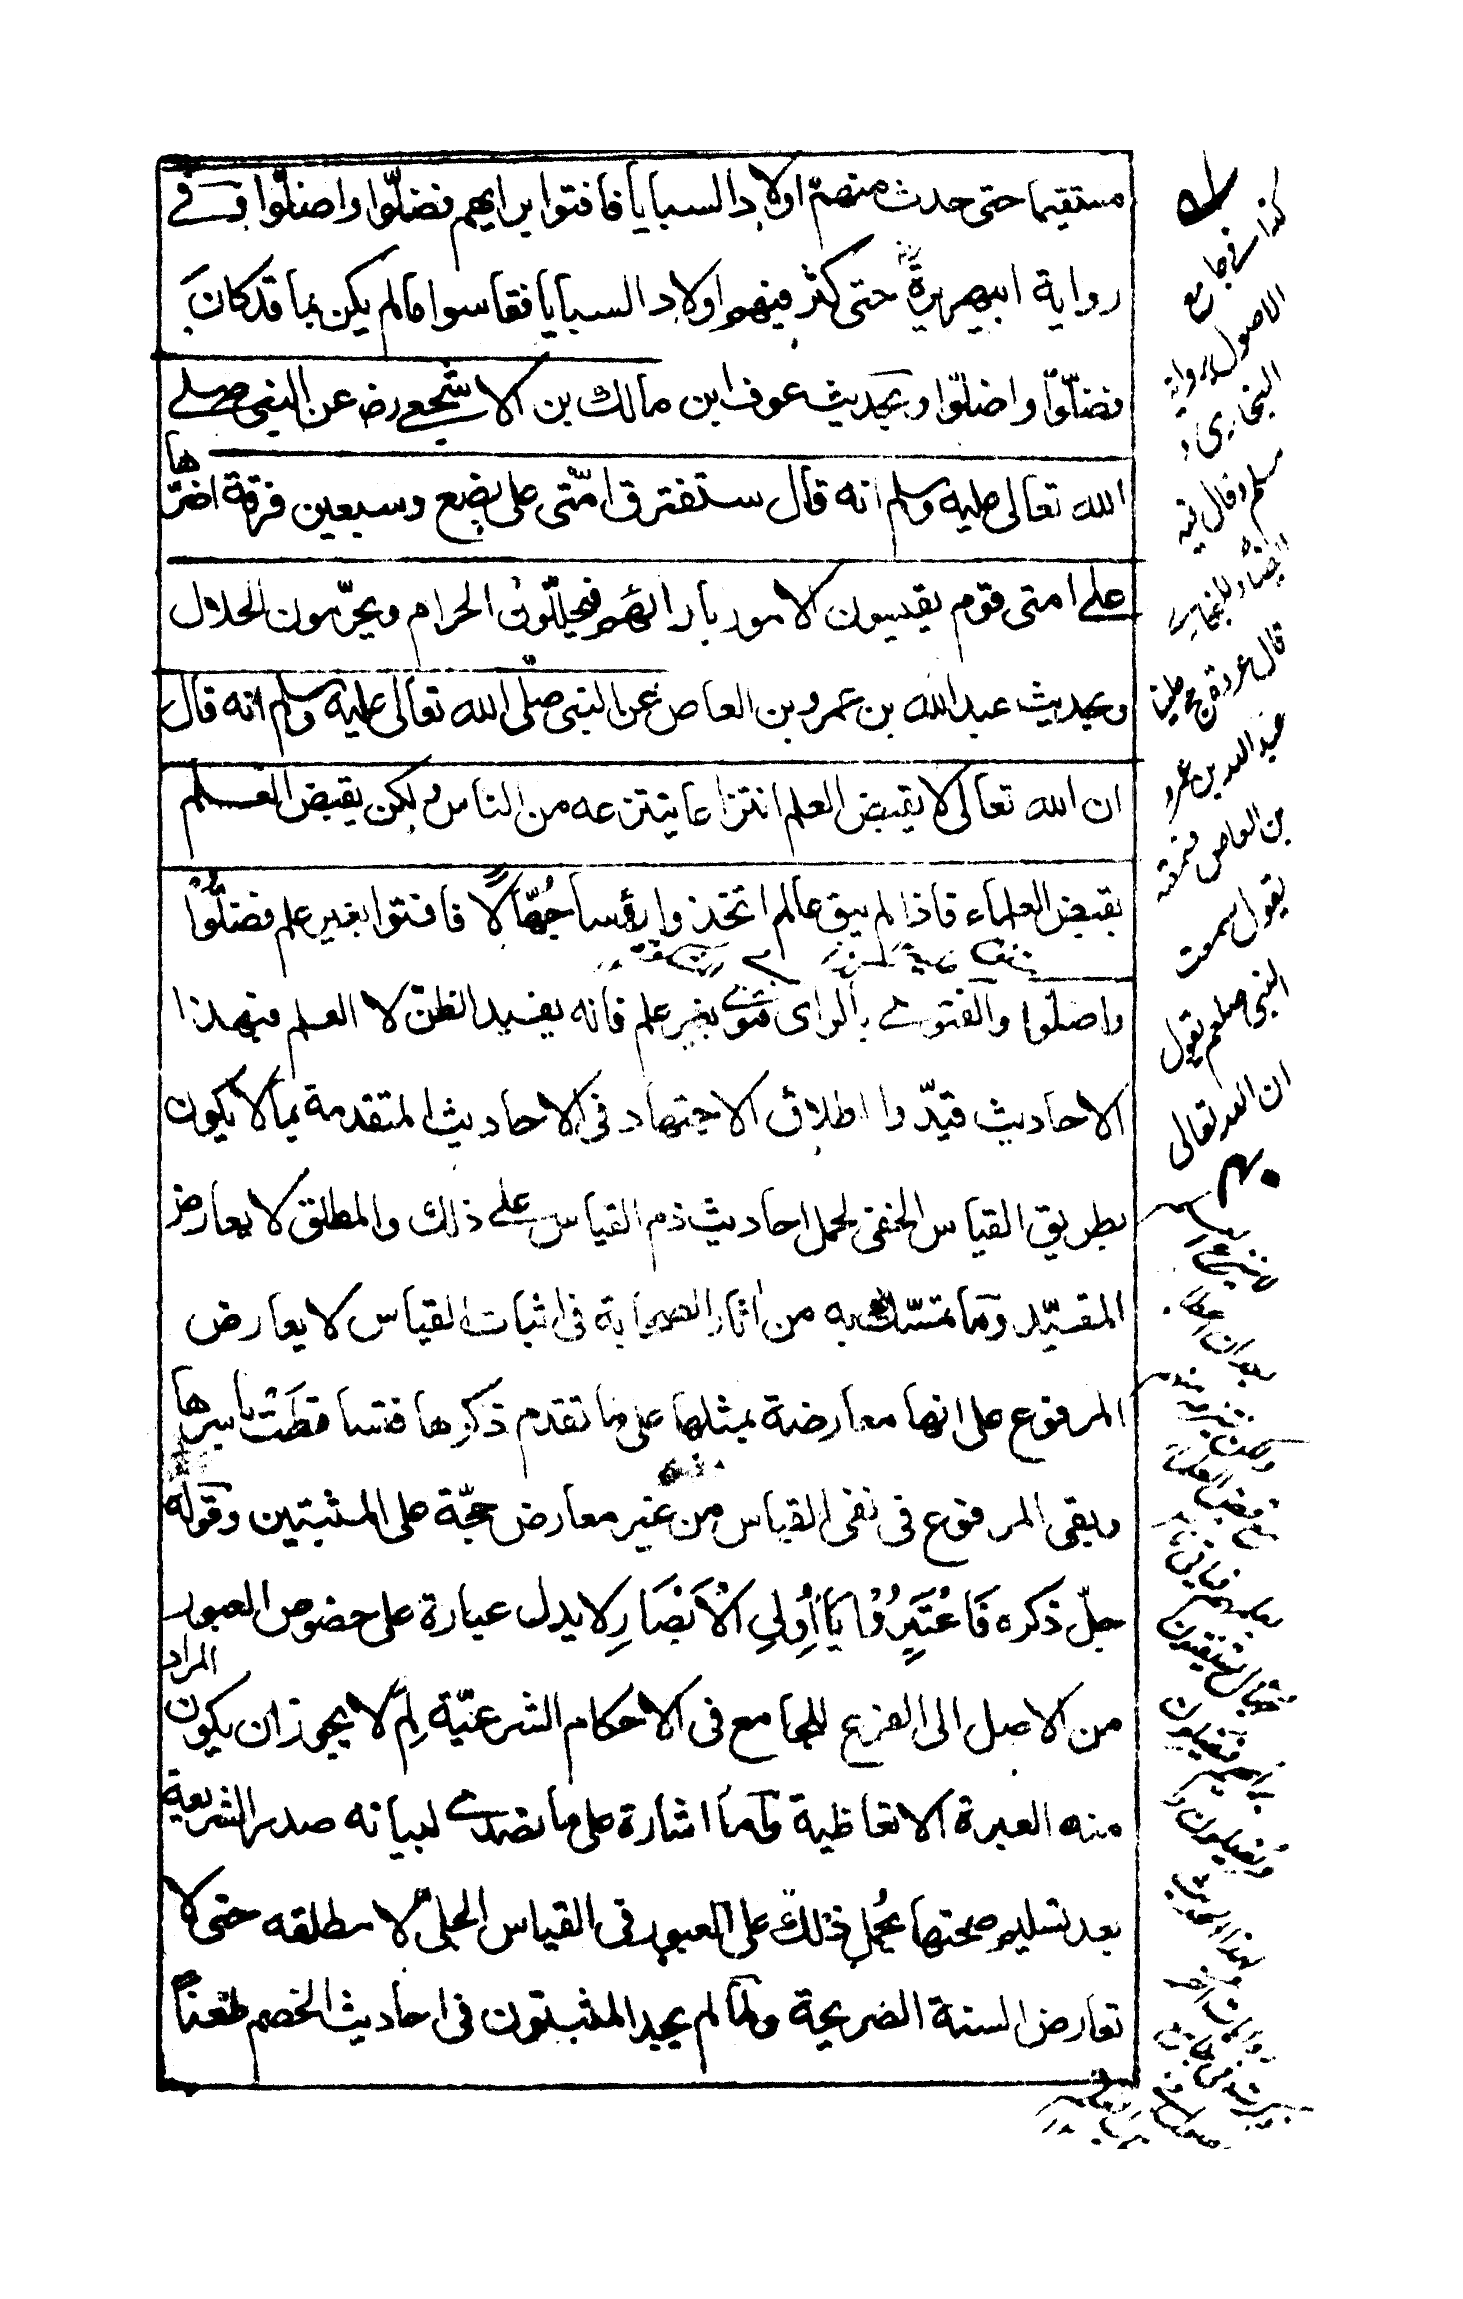 مستقيما حتى حدث منهم اولاد السبايا فافتوا برايهم فضلّوا واضلّوا وفي
رواية ابيهريرة حتى كثر فيهم اولاد السبايا فقاسوا مالم يكن بما قد كان
فضلّوا واضلّوا وبحديث عوف ابن مالك بن الاشجعي رض عن النبي صلى
الله تعالى عليه وسلم انه قال ستفترق امّتى على بضع وسبعين فرقة اضرّها
على امتى قوم يقيسون الامور بارائهم فيحلّلون الحرام ويحرّمون الحلال
وبحديث عبد الله بن عمرو بن العاص عن النبى صلّى الله تعالى عليه وسلم انه قال
ان الله تعالى لا يقبض العلم انتزاعا ينتزعه من الناس ولكن يقبض العلم
بقبض العلماء فاذا لم يبق عالم اتخذوا رؤسا جُهّالًا فافتوا بغير علم فضلّوا
واضلّوا والفتوى بالراى فتوى بغير علم فانه يفيد الظنّ لا العلم فبهذا
الاحاديث قيّدوا اطلاق الاجتهاد فى الاحاديث المتقدمة بما لا يكون
بطريق القياس الخفى لحمل احاديث ذم القياس على ذلك والمطلق لا يعارض
المقيّد وما تمسّك به من اثار الصحابة فى اثبات القياس لا يعارض
المرفوع على انها معارضة بمثلها على ما تقدم ذكرها فتساقطت باسرها
وبقى المرفوع فى نفى القياس من غير معارض حجّة على المثبتين وقوله
جلّ ذكره فَاعْتَبِرُوْا يَا أُولِي الْأَبْصَارِ لا يدل عبارة على خصوص العبور
من الاصل الى الفرع للجامع فى الاحكام الشرعيّة لِمَ لا يجوز ان يكون المراد
منه العبرة الاتعاظية واما اشارة على ما تصدى لبيانه صدر الشريعة
بعد تسليم صحتها يُحمل ذلك على العبور فى القياس الجلىّ لا مطلقه حتى لا
تعارض السنة الصريحة ولمّا لم يجد المثبتون فى احاديث الخصم طعناً
كذا فى جامع
الاصول برواية
البخارى و
مسلم وقال فيه
ايضا وللبخارى
قال عروة حج علينا
عبد الله بن عمرو
بن العاص فسمعته
يقول سمعت
النبى صلعم يقول
ان الله تعالى